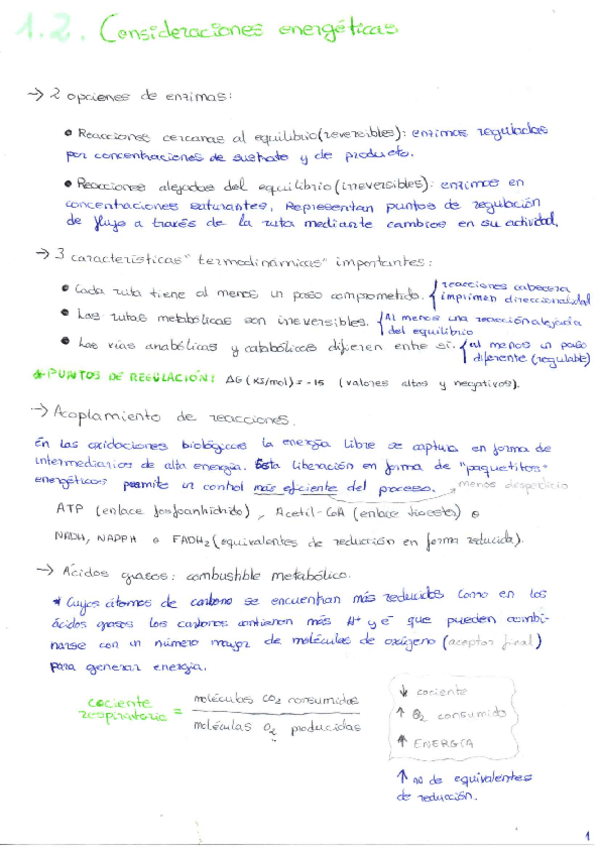 1.2. Consideraciones energéticas
→ 2 opciones de enzimas:
• Reacciones cercanas al equilibrio (reversibles): enzimas reguladas
por concentraciones de sustrato y de producto.
• Reacciones alejadas del equilibrio (irreversibles): enzimas en
concentraciones saturantes. Representan puntos de regulación
de flujo a través de la ruta mediante cambios en su actividad.
→ 3 características "termodinámicas" importantes:
• Cada ruta tiene al menos un paso comprometido. { reacciones cabecera
imprimen direccionalidad
• Las rutas metabólicas son irreversibles. { Al menos una reacción alejada
del equilibrio
• Las vías anabólicas y catabólicas difieren entre sí. { al menos un paso
diferente (regulable)
* PUNTOS DE REGULACIÓN: ΔG (KJ/mol) = -15 (valores altos y negativos).
→ Acoplamiento de reacciones.
En las oxidaciones biológicas la energía libre se captura en forma de
intermediarios de alta energía. Esta liberación en forma de "paquetitos"
energéticos permite un control más eficiente del proceso. → menos desperdicio
ATP (enlace fosfoanhídrido), Acetil-CoA (enlace tioester) o
NADH, NADPH o FADH2 (equivalentes de reducción en forma reducida).
→ Ácidos grasos: combustible metabólico.
* Cuyos átomos de carbono se encuentran más reducidos. Como en los
ácidos grasos los carbonos contienen más H+ y e- que pueden combi-
narse con un número mayor de moléculas de oxígeno (aceptor final)
para generar energía.
cociente respiratorio = moléculas CO2 consumidas
moléculas O2 producidas
↓ cociente
↑ O2 consumido
↑ ENERGÍA
↑ no de equivalentes
de reducción.
1